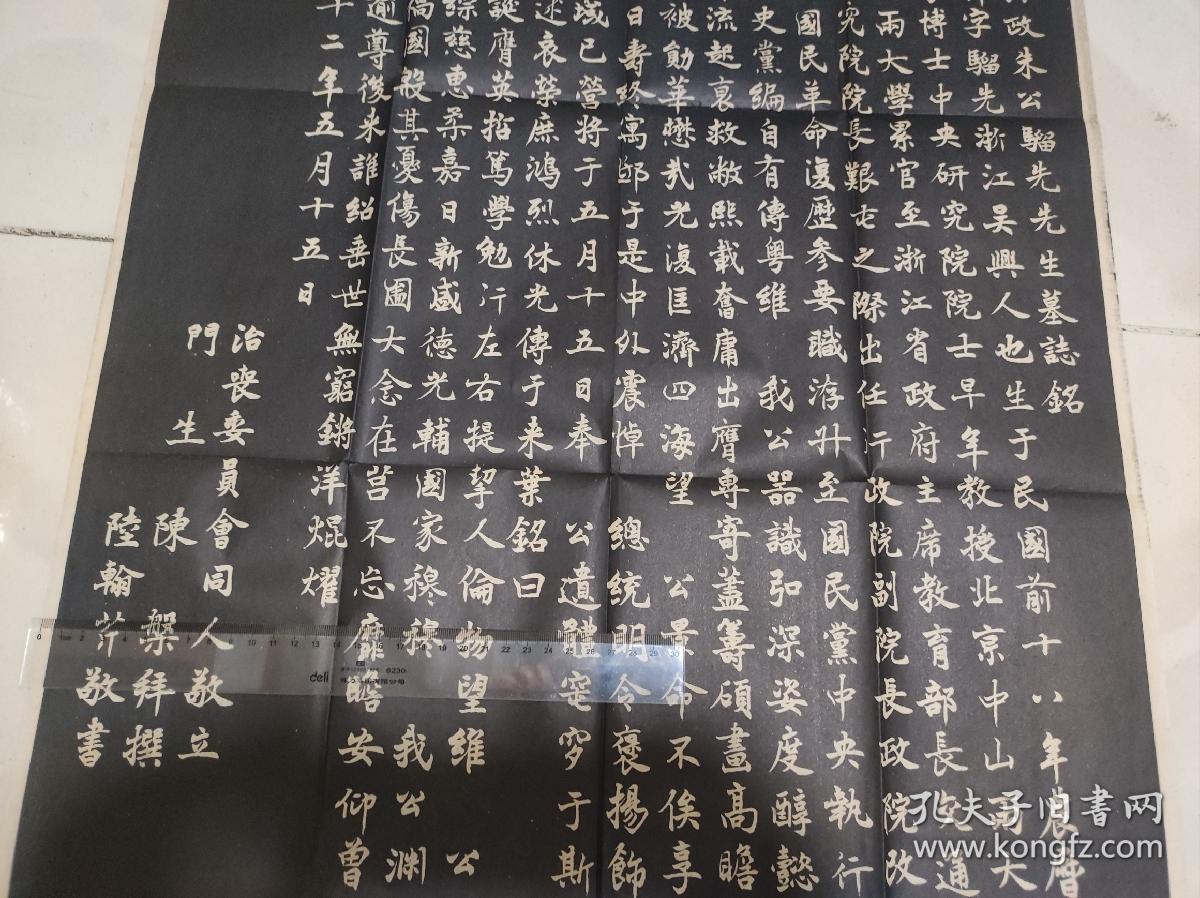 政朱公騮先先生墓誌銘
字騮先浙江吳興人也生于民國前十八年農曆
博士中央研究院院士早年教授北京中山大
兩大學累官至浙江省政府主席教育部長交通
究院院長艱屯之際出任行政院副院長政院改
國民革命復歷參要職洊升至國民黨中央執行
史黨編自有傳粵維 我公器識弘深姿度醇懿
流起裒救敝熙載奮庸出膺專寄蓋籌碩畫高瞻
被勛華懋哉光復匡濟四海望 公景命不俟享
日壽終寓邸于是中外震悼 總統明令褒揚飾
減已營將于五月十五日奉 公遺體窀穸于斯
述哀榮庶鴻烈休光傳于來葉銘曰
誕膺英哲篤學勉行左右提挈人倫物望維 公
綜慈惠柔嘉日新盛德光輔國家穆穆 我公淵
國殷其憂傷長圖大念在莒不忘靡瞻安仰曾
逾尊後來誰紹垂世無窮鏘洋焜燿
十二年五月十五日
治喪委員會同人敬立
門生 陳槃拜撰
陸翰芹敬書
deli
6230
孔夫子旧书网
www.kongfz.com